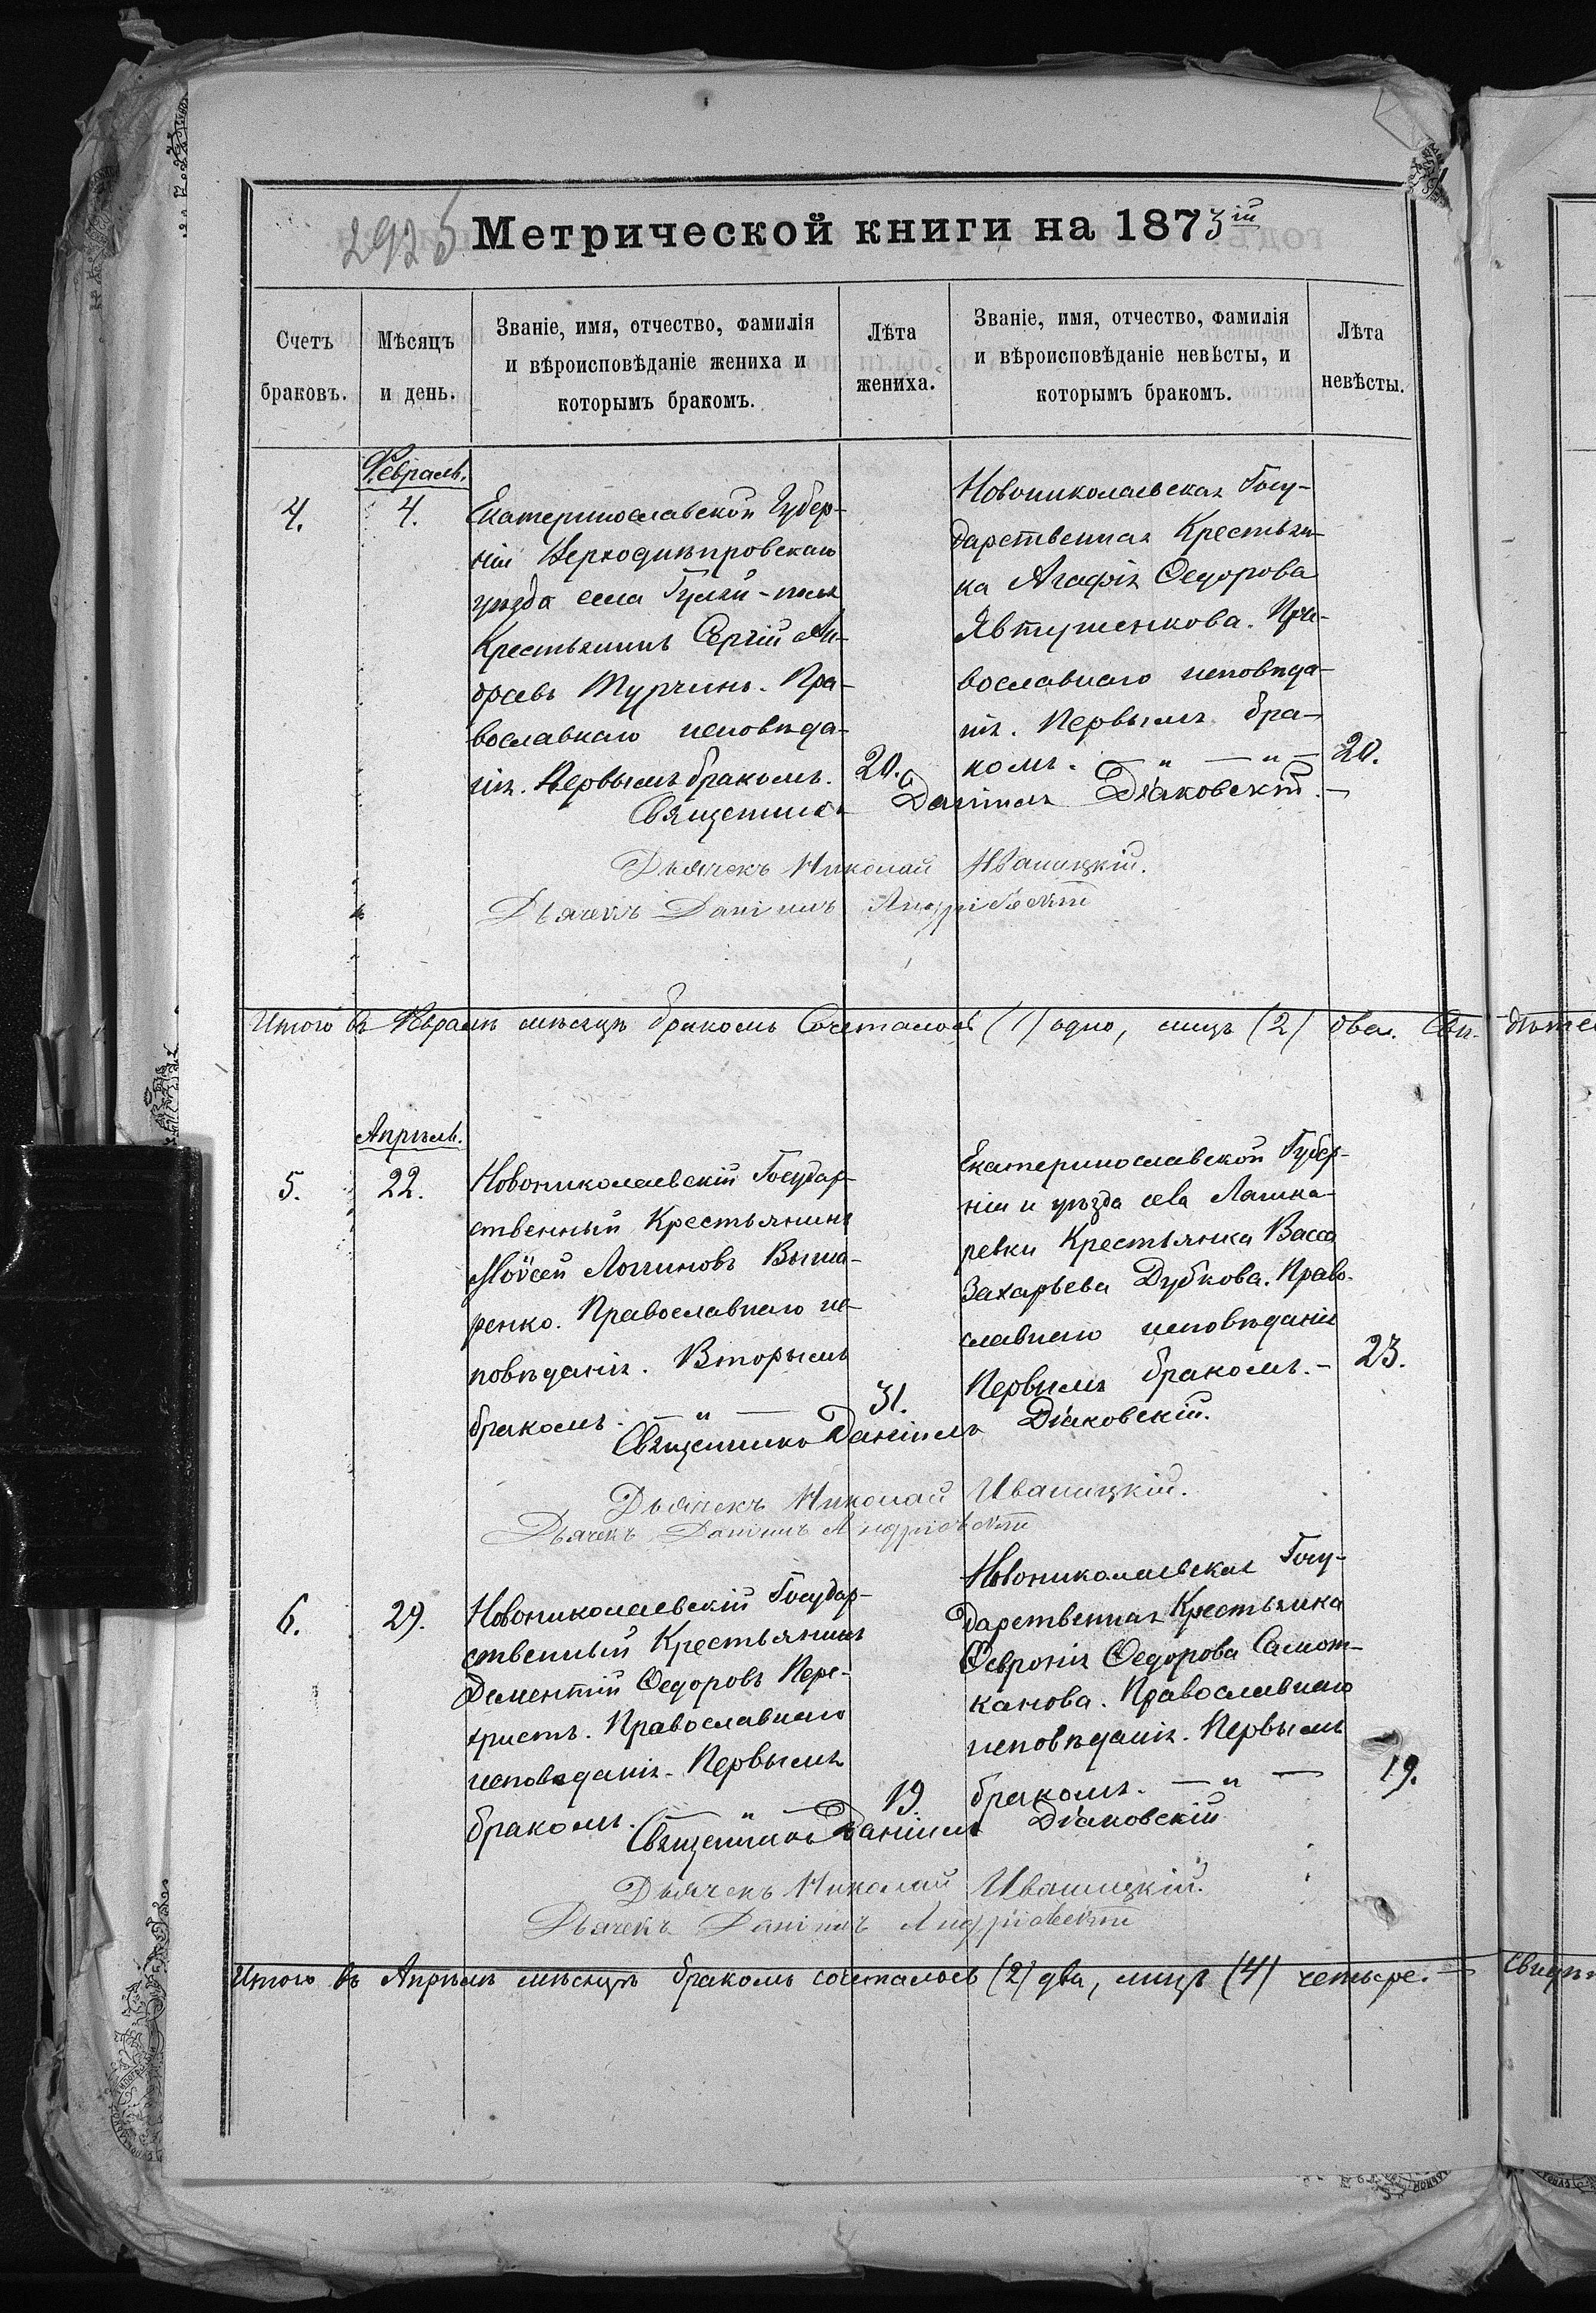 2925 Метрической книги на 1873ій
Счетъ браковъ.
Мѣсяцъ и день.
Званіе, имя, отчество, фамилія
и вѣроисповѣданіе жениха и
которымъ бракомъ.
Лѣта жениха.
Званіе, имя, отчество, фамилія
и вѣроисповѣданіе невѣсты, и
которымъ бракомъ.
Лѣта невѣсты.
Февраль.
4.
4.
Екатеринославской Губер-
ніи Верходнѣпровскаго
уѣзда села Гуляй-поля
Крестьянинъ Сергій Ан-
дреевъ Турчинъ. Пра-
вославнаго исповѣда-
нія. Первымъ бракомъ.
20.
Новониколаевская Госу-
дарственная Крестьян-
ка Агафія Ѳедорова
Явтушенкова. Пра-
вославнаго исповѣда-
нія. Первымъ бра-
комъ. — " — " —
20.
Священникъ Даніилъ Діаковскій.—
Дьячекъ Николай Иваницкій.
Дьячекъ Даніилъ Андріевскій
Итого въ Февралѣ мѣсяцѣ бракомъ сочеталось (1) одно, лицъ (2) два. Сви- дѣте
Апрѣль.
5.
22.
Новониколаевскій Государ-
ственный Крестьянинъ
Моѵсей Логиновъ
ренко. Православнаго ис-
повѣданія. Вторымъ
бракомъ. — " —
31.
Екатеринославской Губер-
ніи и уѣзда села Лашка-
ревки Крестьянка Васса
Захарьева Дубкова. Право-
славнаго исповѣданія
Первымъ бракомъ.—
23.
Священникъ Даніилъ Діаковскій.
Дьячекъ Николай Иваницкій.
Дьячекъ Даніилъ Андріевскій
6.
29.
Новониколаевскій Государ-
ственный Крестьянинъ
Дементій Ѳедоровъ Пере-
христъ. Православнаго
исповѣданія. Первымъ
бракомъ. — " —
19.
Новониколаевская Госу-
дарственная Крестьянка
Ѳевронія Ѳедорова Самот-
канова. Православнаго
исповѣданія. Первымъ
бракомъ. — " —
19.
Священникъ Даніилъ Діаковскій
Дьячекъ Николай Иваницкій.
Дьячекъ Даніилъ Андріевскій
Итого въ Апрѣлѣ мѣсяцѣ бракомъ сочеталось (2) два, лицъ (4) четыре.— Свидѣт